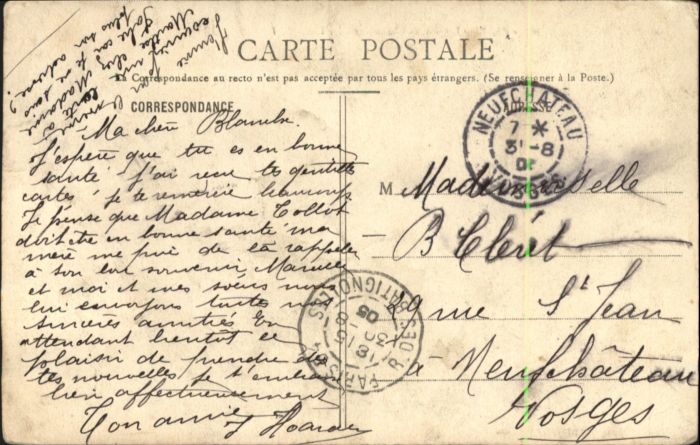 CARTE POSTALE
La Correspondance au recto n'est pas acceptée par tous les pays étrangers. (Se renseigner à la Poste.)
CORRESPONDANCE
Ma chère Blanche.
J'espère que tu es en bonne
santé j'ai reçu tes gentilles
cartes je te remercie beaucoup
Je pense que Madame Collot
doit être en bonne santé ma
mère me prie de la rappeler
à son bon souvenir,
et moi et mes sœurs nous
lui envoyons toutes nos
sincères amitiés En
attendant bientôt le
plaisir de prendre de
tes nouvelles je t'embrasse
bien affectueusement
Ton amie
M Mademoiselle
B Cléret
29 rue St Jean
à Neufchâteau
Vosges
NEUFCHATEAU
7 *
31-8
VOSGES
PARIS
R. DES BATIGNOLLES
05